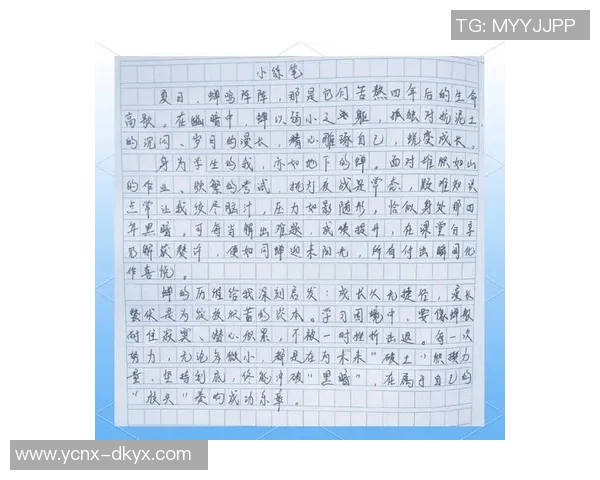 TG: MYYJJPP
小练笔
夏日，蝉鸣阵阵，那是它们苦熬四年后的生命
高歌。在幽暗中，蝉以弱小之躯，孤独对抗泥土
的沉闷、岁月的漫长，精心雕琢自己，蜕变成长。
身为学生的我，亦如地下的蝉。面对堆积如山
的作业、频繁的考试，挑灯夜战是常态，疑难知识
点常让我绞尽脑汁，压力如影随形，恰似身处那四
年黑暗。可每当解出难题，成绩提升，在课堂分享
见解获赞许，便如同蝉迎来阳光，所有付出瞬间化
作喜悦。
蝉的历程给我深刻启发：成长从无捷径，漫长
蛰伏是为绽放积蓄的资本。学习困境中，要像蝉般
耐住寂寞、潜心积累，不被一时挫折击退。每一次
努力，无论多微小，都是在为未来“破土”积攒力
量，坚持到底，终能冲破“黑暗”，在属于自己的
“枝头”奏响成功乐章。
www.ycnx-dkyx.com